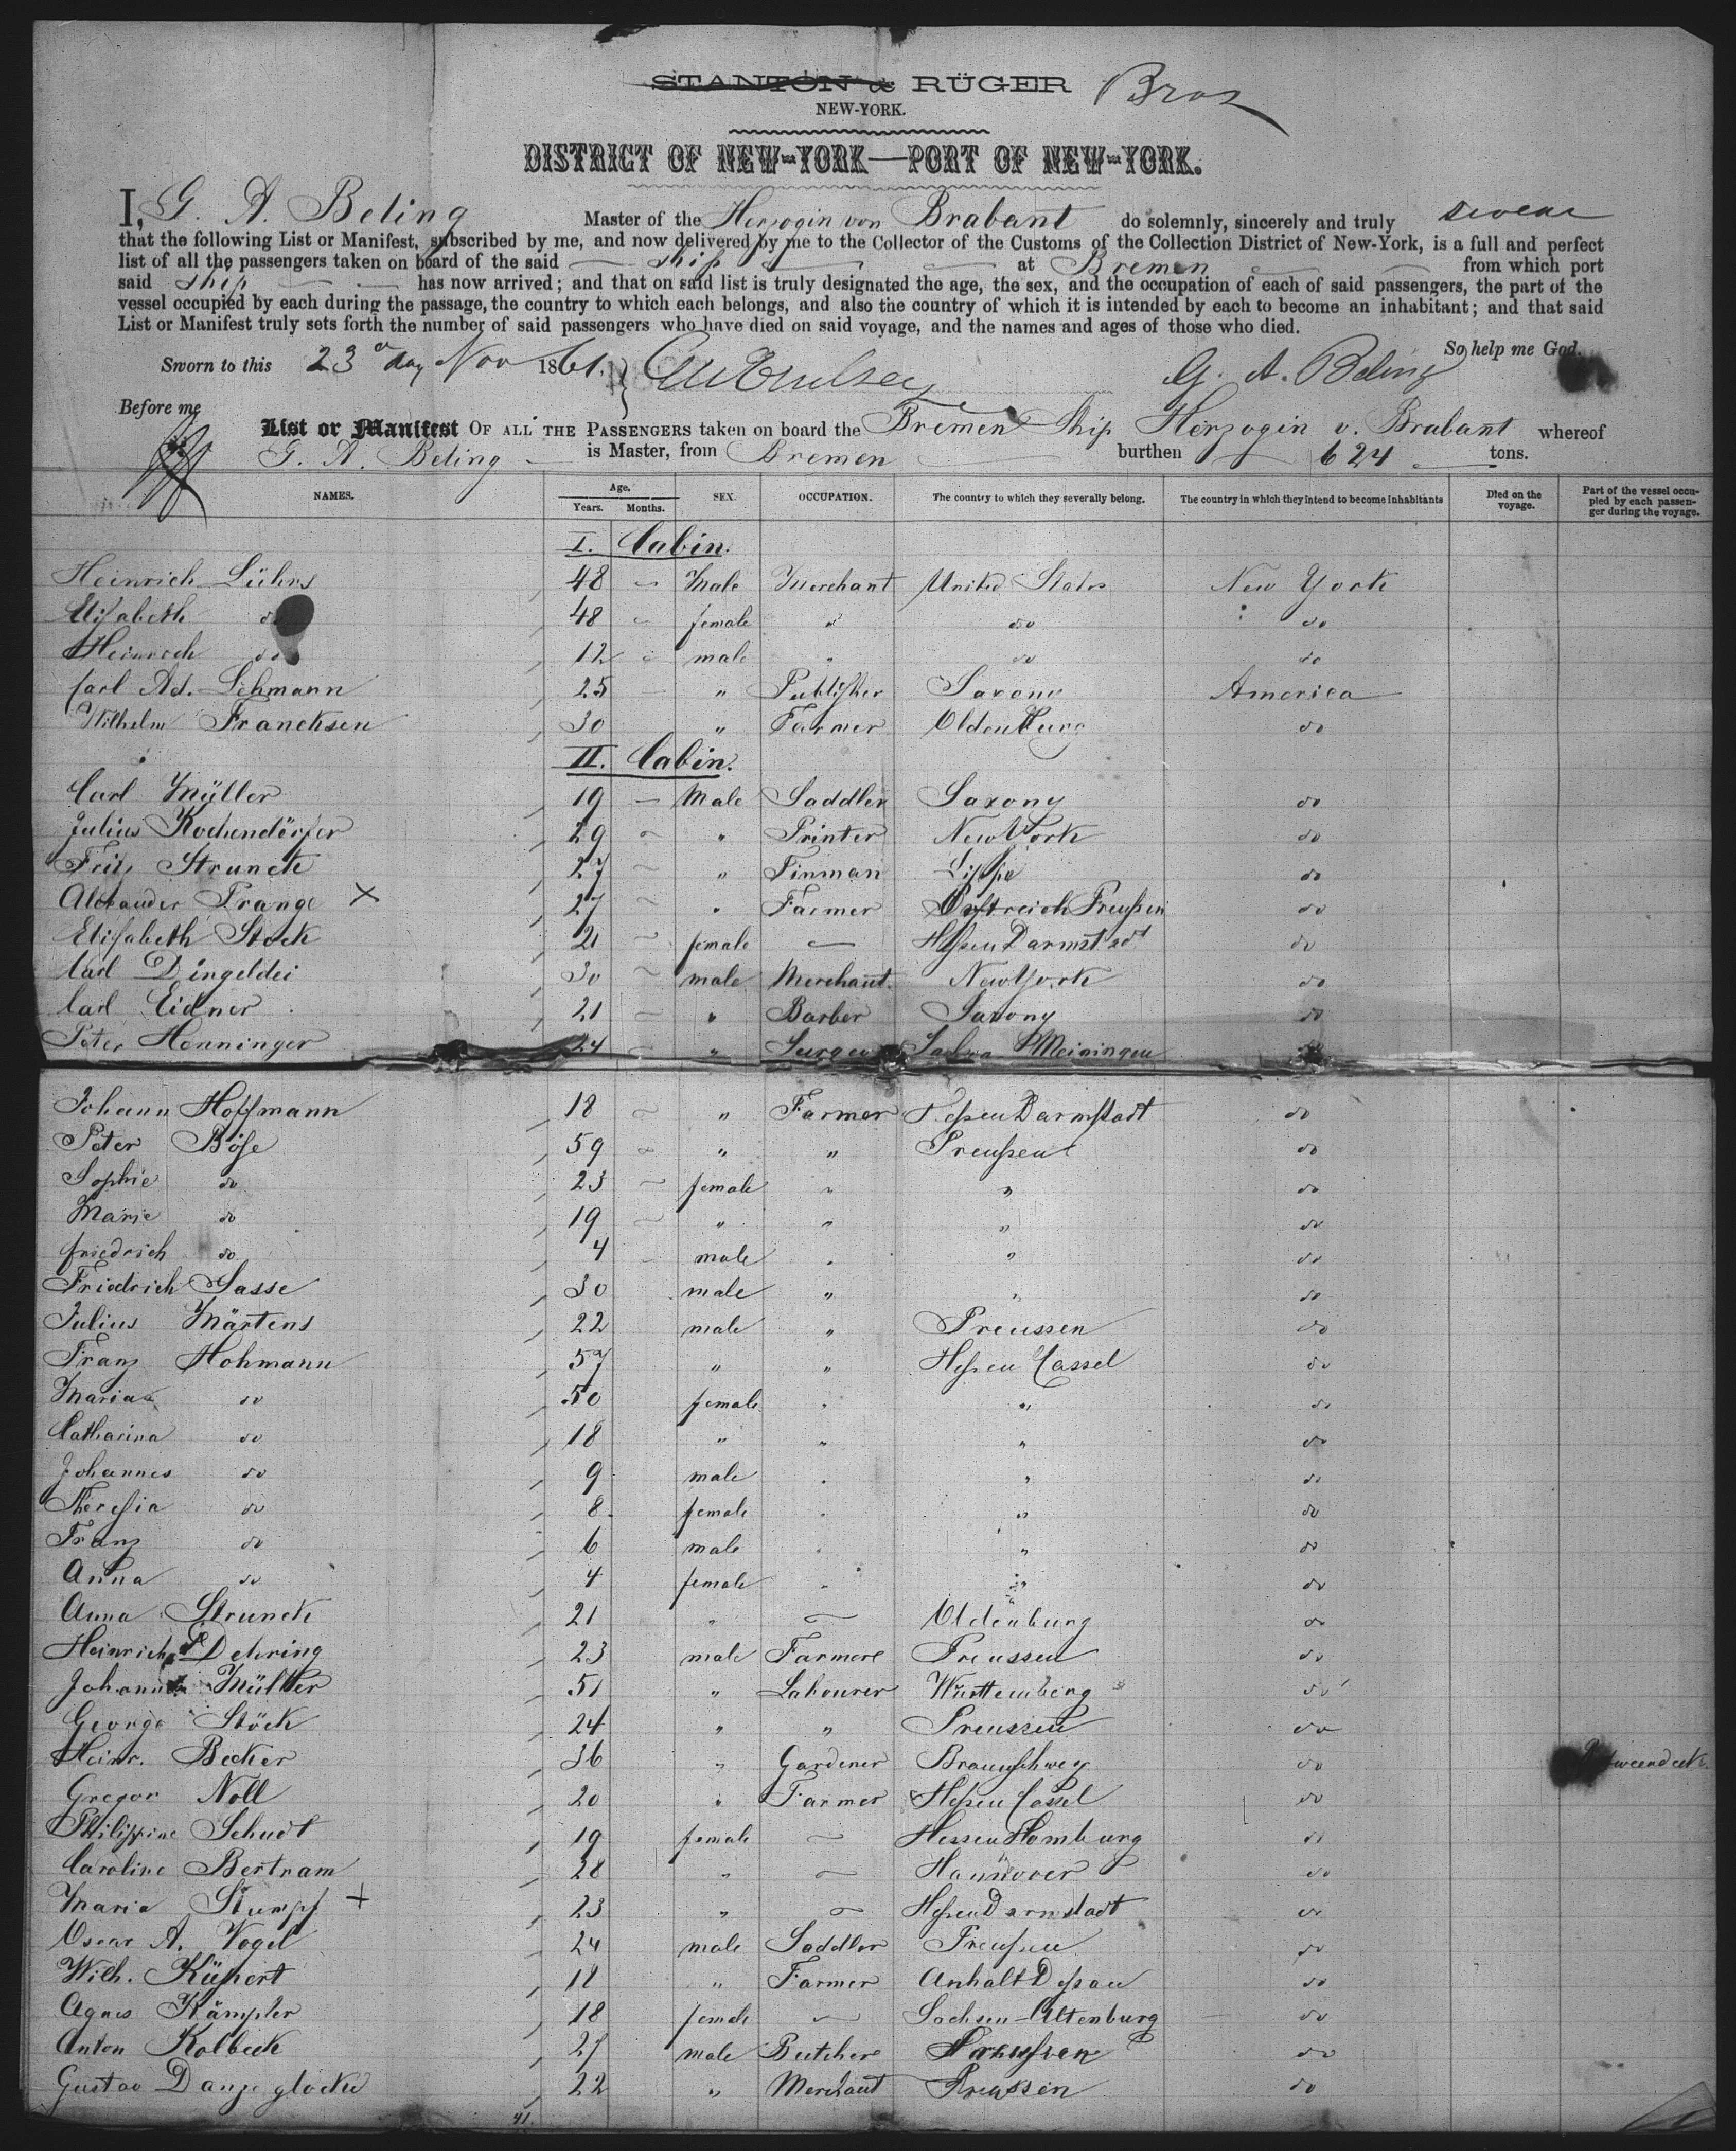 STANTON & RÜGER Bros
NEW-YORK.
DISTRICT OF NEW-YORK—PORT OF NEW-YORK.
I, G. A. Beling Master of the Herzogin von Brabant do solemnly, sincerely and truly swear
that the following List or Manifest, subscribed by me, and now delivered by me to the Collector of the Customs of the Collection District of New-York, is a full and perfect
list of all the passengers taken on board of the said ship at Bremen from which port
said ship has now arrived; and that on said list is truly designated the age, the sex, and the occupation of each of said passengers, the part of the
vessel occupied by each during the passage, the country to which each belongs, and also the country of which it is intended by each to become an inhabitant; and that said
List or Manifest truly sets forth the number of said passengers who have died on said voyage, and the names and ages of those who died.
So help me God.
Sworn to this 23d day Nov 1861. G. A. Beling
Before me
List or Manifest OF ALL THE PASSENGERS taken on board the Bremen Ship Herzogin v. Brabant whereof
G. A. Beling is Master, from Bremen burthen 624 tons.
NAMES. Age. Years. Months. SEX. OCCUPATION. The country to which they severally belong. The country in which they intend to become inhabitants Died on the voyage. Part of the vessel occupied by each passenger during the voyage.
I. Cabin.
Heinrich Lührs 48 Male Merchant United States New York
Elisabeth do 48 female " do do
Heinrich do 12 male " do do
Carl Ad. Lehmann 25 " Publisher Saxony America
Wilhelm Francksen 30 " Farmer Oldenburg do
II. Cabin.
Carl Müller 19 Male Saddler Saxony do
Julius Kochendörfer 29 " Printer New York do
Fritz Strunck 27 " Finman Lippe do
Alexander Prange X 27 " Farmer Oestreich Preußen do
Elisabeth Stock 21 female — Heßen Darmstadt do
Carl Dingeldei 30 male Merchant New York do
Carl Eidner 21 " Barber Saxony do
Peter Henninger 24 " Meiningen
Johann Hoffmann 18 " Farmer Heßen Darmstadt do
Peter Böse 59 " " Preußen do
Sophie do 23 female " " do
Marie do 19 " " " do
Friedrich do 4 male " " do
Friedrich Sasse 30 male " " do
Julius Märtens 22 male " Preussen do
Franz Hohmann 57 " " Heßen Cassel do
Maria do 50 female " " do
Catharina do 18 " " " do
Johannes do 9 male " " do
Theresia do 8 female " " do
Franz do 6 male " " do
Anna do 4 female " " do
Anna Strunck 21 " — Oldenburg do
Heinrich Dehring 23 male Farmer Preussen do
Johann Müller 51 " Labourer Württemberg do
George Stöck 24 " " Preussen do
Heinr. Becker 36 " Gardener Braunschweg do Betweendeck
Gregor Noll 20 " Farmer Heßen Cassel do
Philippine Schudt 19 female — Hessen Homburg do
Caroline Bertram 28 " — Hannover do
Maria Stumpf + 23 " — Heßen Darmstadt do
Oscar A. Vogel 24 male Saddler Preußen do
Wilh. 18 " Farmer Anhalt Deßau do
Agnes Kämpfer 18 female — Sachsen-Altenburg do
Anton Kolbeck 27 male Butcher Preussen do
Gustav Danzeglocke 22 " Merchant Preussen do
41.